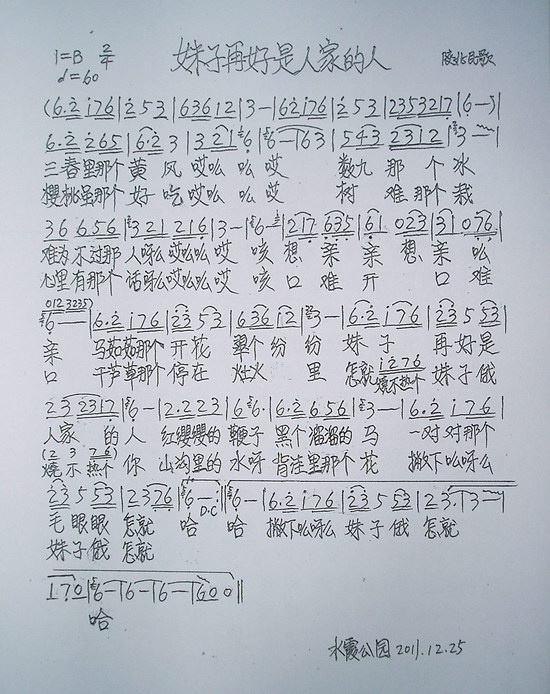 妹子再好是人家的人
1=B 2/4
♩=60
陕北民歌
(6·2 i76|2 53|636 12|3-|62i76|2 53|2353217|6-)|
6·2 265|6·2 3|3 21|6|6-763|543 2312|3
三春里那个黄风哎么么哎 数九那个冰
樱桃虽那个好吃哎么么哎 树难那个栽
36 656|321 216|3-|6-|217 635|61 023|31 076|
难为不过那人呀么哎么么哎 咳想亲亲想亲么
心里有那个话呀么哎么么哎 咳口难开 口难
012 3235)
6--|6·2 i76|23 53|636 i2|3-|6·2 i76|23 53|
亲 马茹茹那个开花 翠个纷纷 妹子 再好是
口 干芦草那个停在 灶火里 怎就 妹子俄
i276
烧不热个
23 2317|6-|2·223|66·|6·2 656|3-|6·2 i76|
人家的人 红缨缨的鞭子 黑个溜溜的马 一对对那个
(2 3 76)
烧不热个 你 山沟里的水呀 背洼里那个花 撇下么呀么
23 5 53|2376|6-:|6-|6·2 i76|23 5 53|23·|3-|
毛眼眼 怎就 哈 哈 撇下么呀么 妹子俄 怎就
D.C
妹子俄 怎就
170|6-|6-|6-|600||
哈
水霞公园 2011.12.25